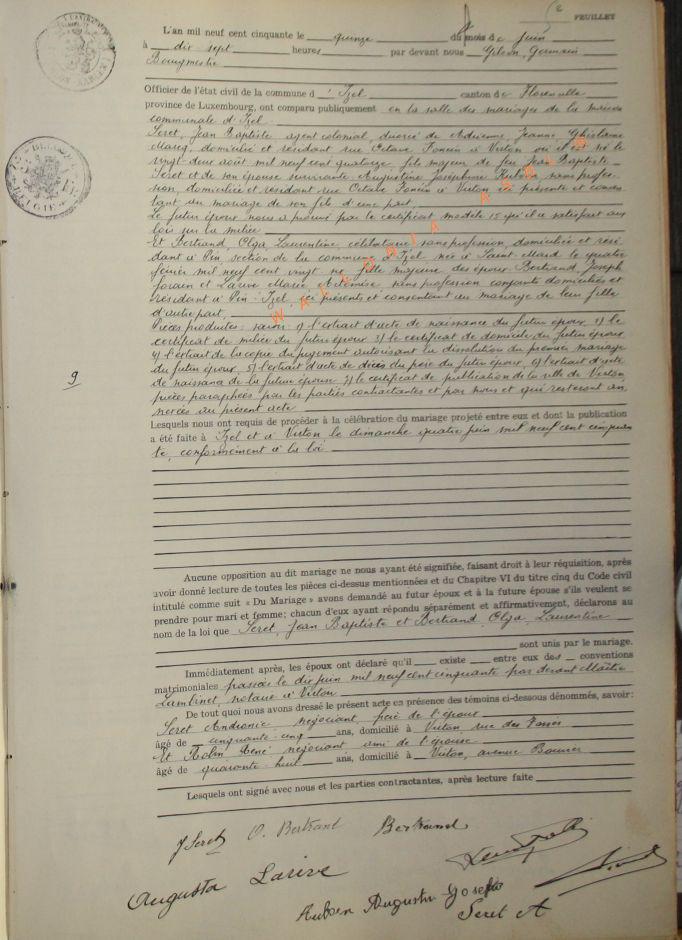 5e FEUILLET
L'an mil neuf cent cinquante le quinze du mois de juin
à dix sept heures par devant nous Gilson, Germain
Bourgmestre
Officier de l'état civil de la commune d' Izel canton de Florenville
province de Luxembourg, ont comparu publiquement en la salle des mariages de la maison
communale d'Izel
Seret, Jean Baptiste agent colonial, divorcé de Adrienne, Jeanne, Ghislaine
Marcq, domicilié et résidant rue Octave Foncin à Virton où il est né le
vingt-deux août mil neuf cent quatorze, fils majeur de feu Jean Baptiste
Seret et de son épouse survivante Augustine Joséphine sans profes-
sion, domiciliée et résidant rue Octave Foncin à Virton ici présente et consen
tant au mariage de son fils d'une part,
Le futur époux nous a prouvé par le certificat modèle 15 qu'il a satisfait aux
lois sur la milice
Et Bertrand, Olga, Laurentine, célibataire sans profession, domiciliée et rési
dant à Pin, section de la commune d'Izel née à Saint Mard le quatre
février mil neuf cent vingt fille majeure des époux Bertrand, Joseph
forain et Larive Marie, sans profession conjoints domiciliés et
résidant à Pin-Izel, ici présents et consentant au mariage de leur fille
d'autre part,
Pièces produites: savoir: 1) l'extrait d'acte de naissance du futur époux 2) le
certificat de milice du futur époux 3) le certificat de domicile du futur époux
4) l'extrait de la copie du jugement autorisant la dissolution du premier mariage
du futur époux, 5) l'extrait d'acte de décès du père du futur époux, 6) l'extrait d'acte
de naissance de la future épouse 7) le certificat de publication de la ville de Virton,
pièces paraphées par les parties contractantes et par nous et qui resteront an
nexées au présent acte
9
Lesquels nous ont requis de procéder à la célébration du mariage projeté entre eux et dont la publication
a été faite à Izel et à Virton le dimanche quatre juin mil neuf cent cinquan
te, conformément à la loi
Aucune opposition au dit mariage ne nous ayant été signifiée, faisant droit à leur réquisition, après
avoir donné lecture de toutes les pièces ci-dessus mentionnées et du Chapitre VI du titre cinq du Code civil
intitulé comme suit « Du Mariage » avons demandé au futur époux et à la future épouse s'ils veulent se
prendre pour mari et femme; chacun d'eux ayant répondu séparément et affirmativement, déclarons au
nom de la loi que Seret, Jean Baptiste et Bertrand, Olga, Laurentine
sont unis par le mariage.
Immédiatement après, les époux ont déclaré qu'il existe entre eux des conventions
matrimoniales passées le dix juin mil neuf cent cinquante par devant Maître
Lambinet, notaire à Virton
De tout quoi nous avons dressé le présent acte en présence des témoins ci-dessous dénommés, savoir:
Seret Andronic négociant, frère de l'époux
âgé de cinquante-cinq ans, domicilié à Virton rue des Fossés
Et Robin René négociant ami de l'épouse
âgé de quarante-huit ans, domicilié à Virton, avenue Bouvier
Lesquels ont signé avec nous et les parties contractantes, après lecture faite
J Seret O. Bertrand Bertrand
Augusta Larive
Augusta Josephe
Seret A
WALLONIA ASBL